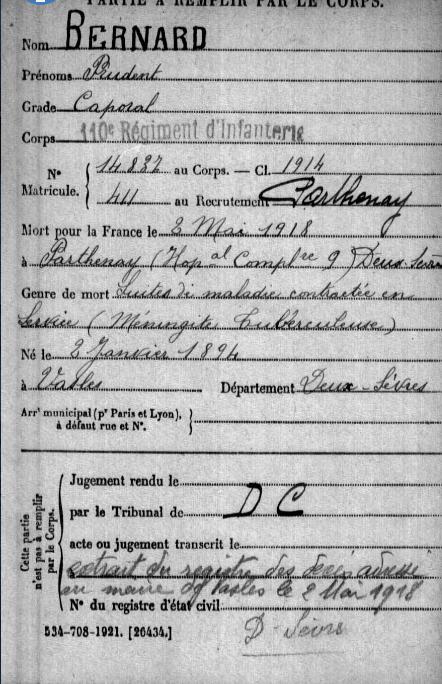 PARTIE A REMPLIR PAR LE CORPS.
Nom BERNARD
Prénoms Prudent
Grade Caporal
Corps 110e Régiment d'Infanterie
N° Matricule. { 14837 au Corps. — Cl. 1914
411 au Recrutement Parthenay
Mort pour la France le 2 Mai 1918
à Parthenay (Hop al Complre 9) Deux-Sèvres
Genre de mort Suites de maladie contractée en
Service (Méningite Tuberculeuse)
Né le 2 Janvier 1894
à Vasles Département Deux-Sèvres
Arrt municipal (pr Paris et Lyon), à défaut rue et N°. }
Cette partie n'est pas à remplir par le Corps.
Jugement rendu le
par le Tribunal de D C
acte ou jugement transcrit le
extrait du registre des décès adressé
au maire de Vasles le 2 Mai 1918
N° du registre d'état civil
534-708-1921. [26434.] D-Sèvres